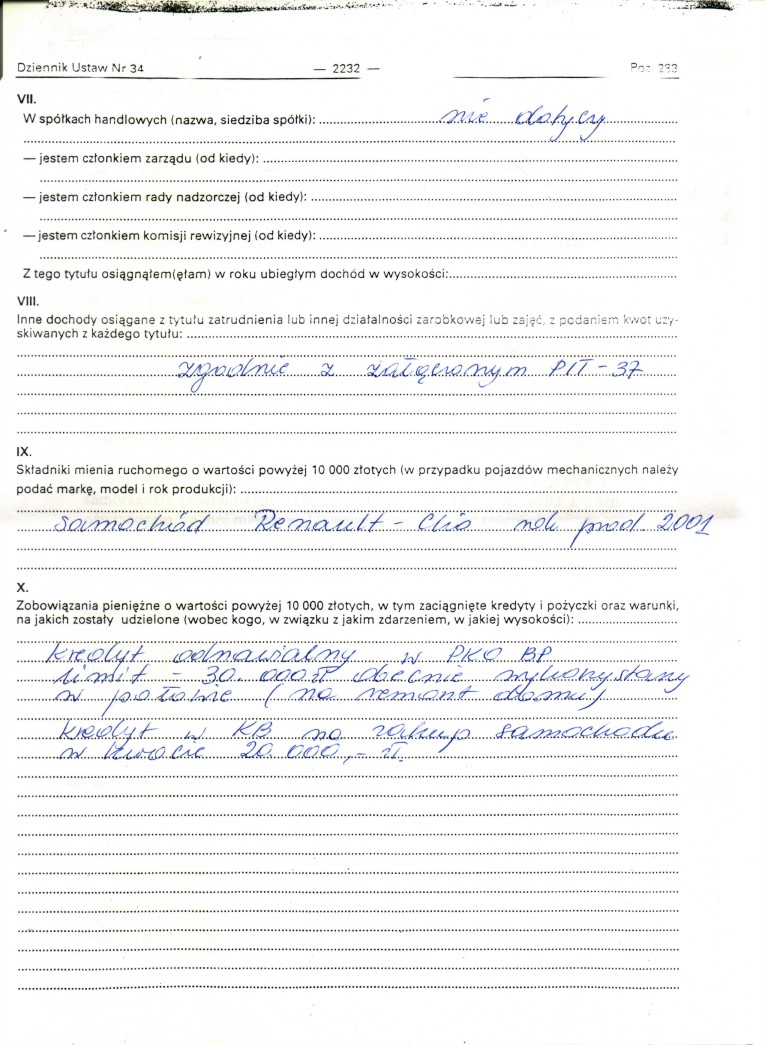 Dziennik Ustaw Nr 34 — 2232 — Poz. 283
VII.
W spółkach handlowych (nazwa, siedziba spółki): nie dotyczy
— jestem członkiem zarządu (od kiedy):
— jestem członkiem rady nadzorczej (od kiedy):
— jestem członkiem komisji rewizyjnej (od kiedy):
Z tego tytułu osiągnąłem(ęłam) w roku ubiegłym dochód w wysokości:
VIII.
Inne dochody osiągane z tytułu zatrudnienia lub innej działalności zarobkowej lub zajęć, z podaniem kwot uzy-
skiwanych z każdego tytułu:
zgodnie z załączonym PIT-37
IX.
Składniki mienia ruchomego o wartości powyżej 10 000 złotych (w przypadku pojazdów mechanicznych należy
podać markę, model i rok produkcji):
samochód Renault - Clio rok prod 2001
X.
Zobowiązania pieniężne o wartości powyżej 10 000 złotych, w tym zaciągnięte kredyty i pożyczki oraz warunki,
na jakich zostały udzielone (wobec kogo, w związku z jakim zdarzeniem, w jakiej wysokości):
kredyt odnawialny w PKO BP
limit - 30.000 zł obecnie wykorzystany
w połowie (na remont domu)
kredyt w KB na zakup samochodu
w kwocie 20.000,- zł.